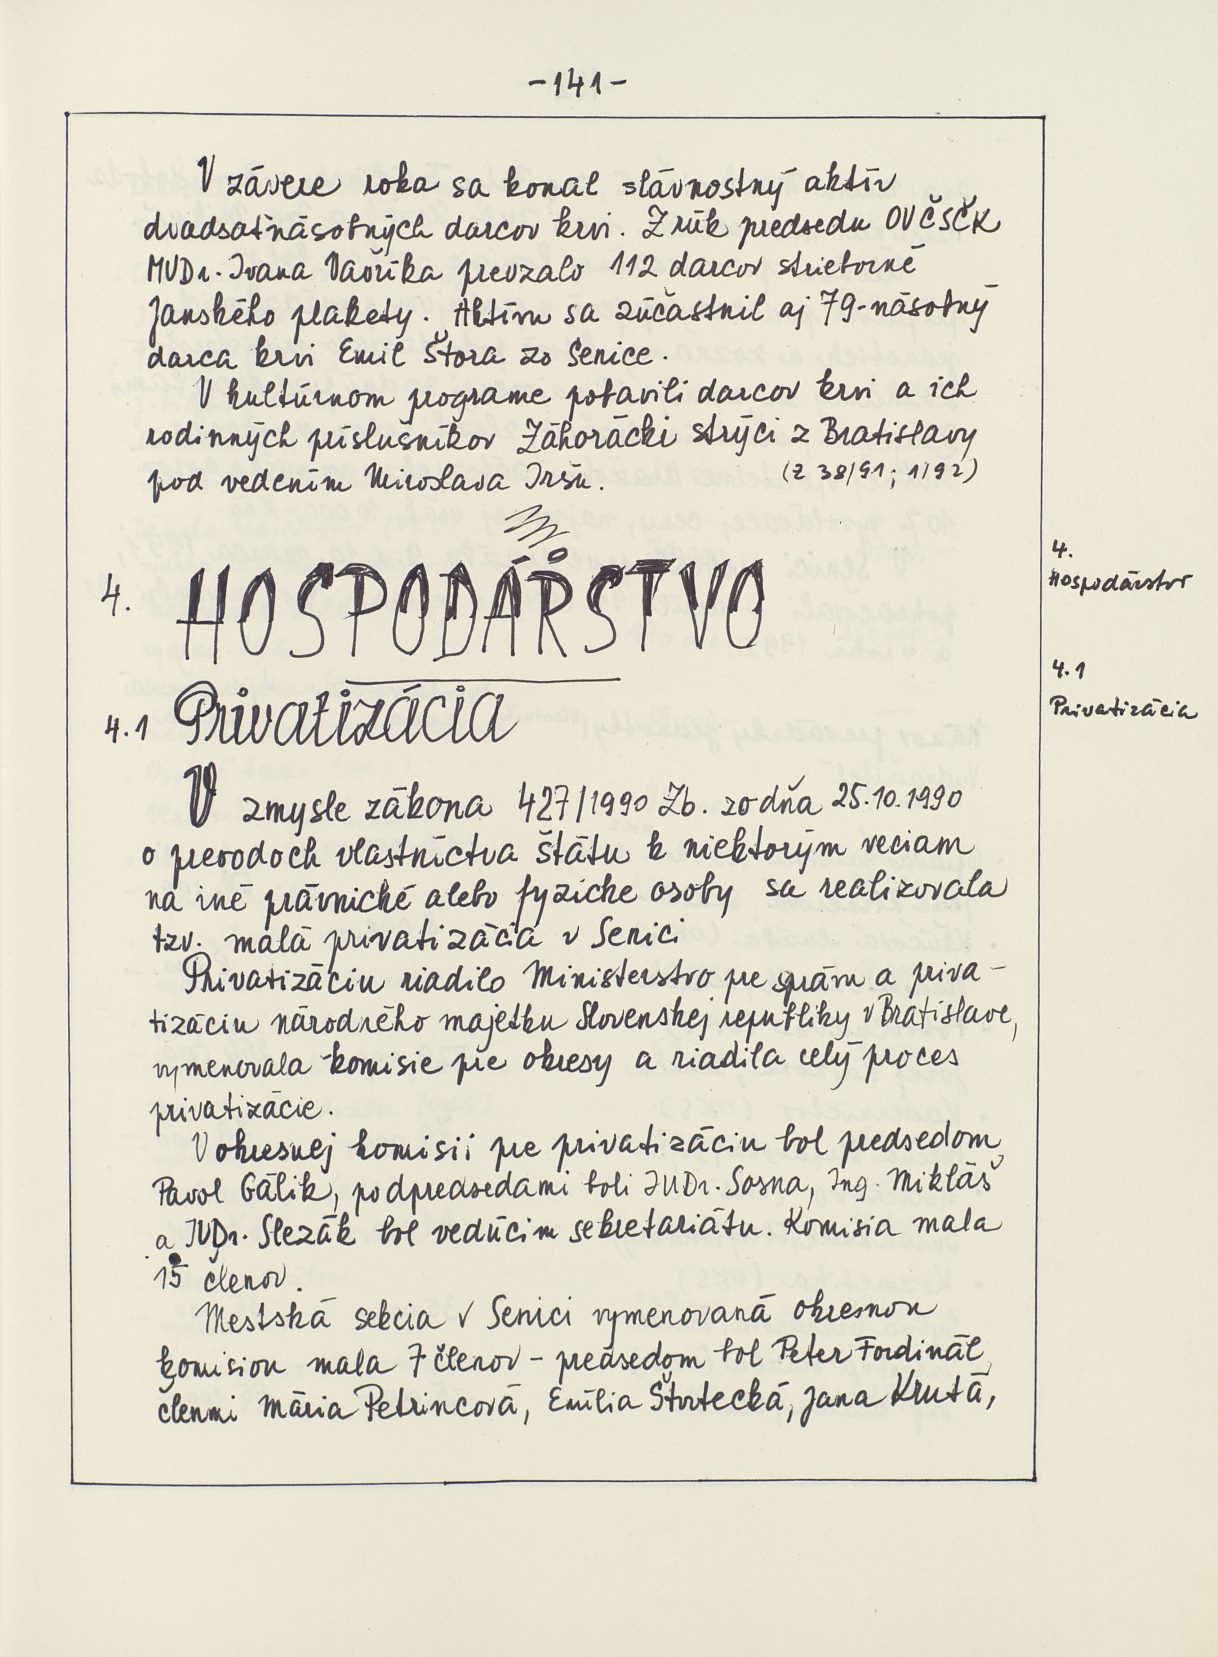 -141-
V závere roka sa konal slávnostný aktív
dvadsaťnásobných darcov krvi. Z rúk predsedu OV ČSČK
MUDr. Ivana Vaříka prevzalo 112 darcov strieborné
Janského plakety. Aktívu sa zúčastnil aj 79-násobný
darca krvi Emil Štora zo Senice.
V kultúrnom programe pobavili darcov krvi a ich
rodinných príslušníkov Záhorácki strýci z Bratislavy
pod vedením Miroslava Iršu. (Z 38/91; 1/92)
4. HOSPODÁRSTVO
4. Hospodárstvo
4.1 Privatizácia
4.1 Privatizácia
V zmysle zákona 427/1990 Zb. zo dňa 25.10.1990
o prevodoch vlastníctva štátu k niektorým veciam
na iné právnické alebo fyzické osoby sa realizovala
tzv. malá privatizácia v Senici
Privatizáciu riadilo Ministerstvo pre správu a priva-
tizáciu národného majetku Slovenskej republiky v Bratislave,
vymenovala komisie pre okresy a riadila celý proces
privatizácie.
V okresnej komisii pre privatizáciu bol predsedom
Pavol Gálik, podpredsedami boli JUDr. Sosna, Ing. Mikláš
a JUDr. Slezák bol vedúcim sekretariátu. Komisia mala
15 členov.
Mestská sekcia v Senici vymenovaná okresnou
komisiou mala 7 členov - predsedom bol Peter Fordinál,
členmi Mária Petrincová, Emília Štvrtecká, Jana Krutá,